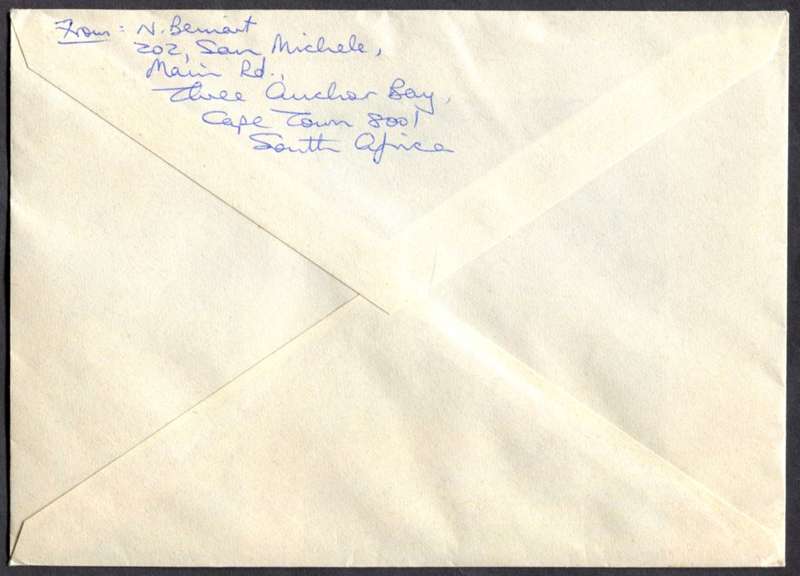 From: N. Bernart
202, San Michele,
Main Rd.,
Three Anchor Bay,
Cape Town 8001
South Africa